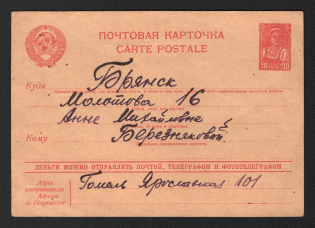 ПОЧТОВАЯ КАРТОЧКА
CARTE POSTALE
20 20
Куда Брянск
Молотова 16
Анне Михайловне
Кому Бережковой
ДЕНЬГИ МОЖНО ОТПРАВЛЯТЬ ПОЧТОЙ, ТЕЛЕГРАФОМ И ФОТОТЕЛЕГРАФОМ
Адрес
отправителя
Adresse
de l'expéditeur
Гомель Ярославская 101